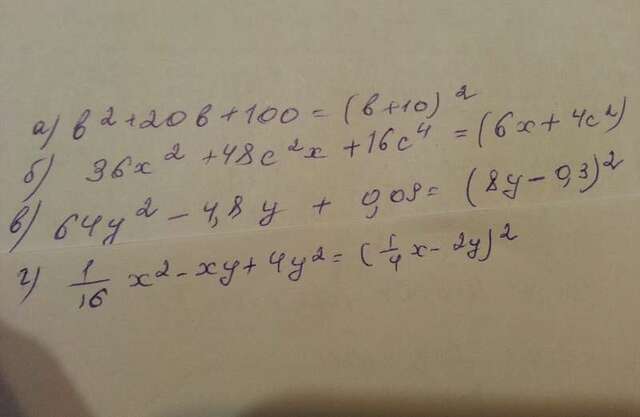 а) b² + 20b + 100 = (b+10)²
б) 36x² + 48c²x + 16c⁴ = (6x + 4c²)
в) 64y² - 4,8y + 0,09 = (8y - 0,3)²
г) 1/16 x² - xy + 4y² = (1/4 x - 2y)²